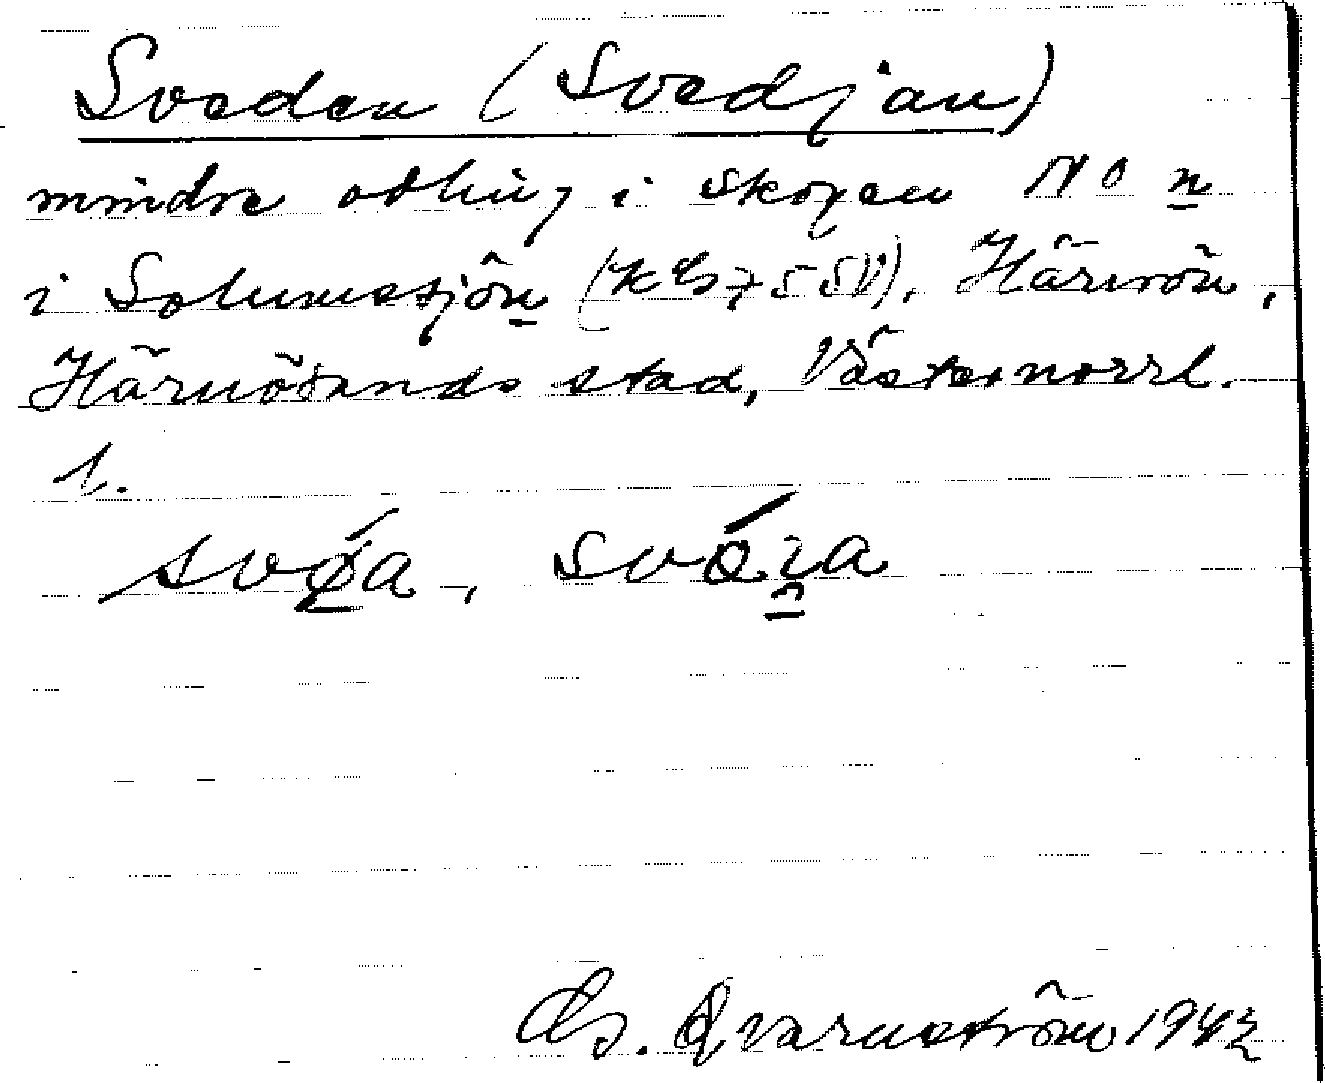 Sveden (Svedjan)
mindre odling i skogen NO n
i Solumsjön Härnön,
Härnösands stad, Västernorrl.
l.
G. Qvarnström 194